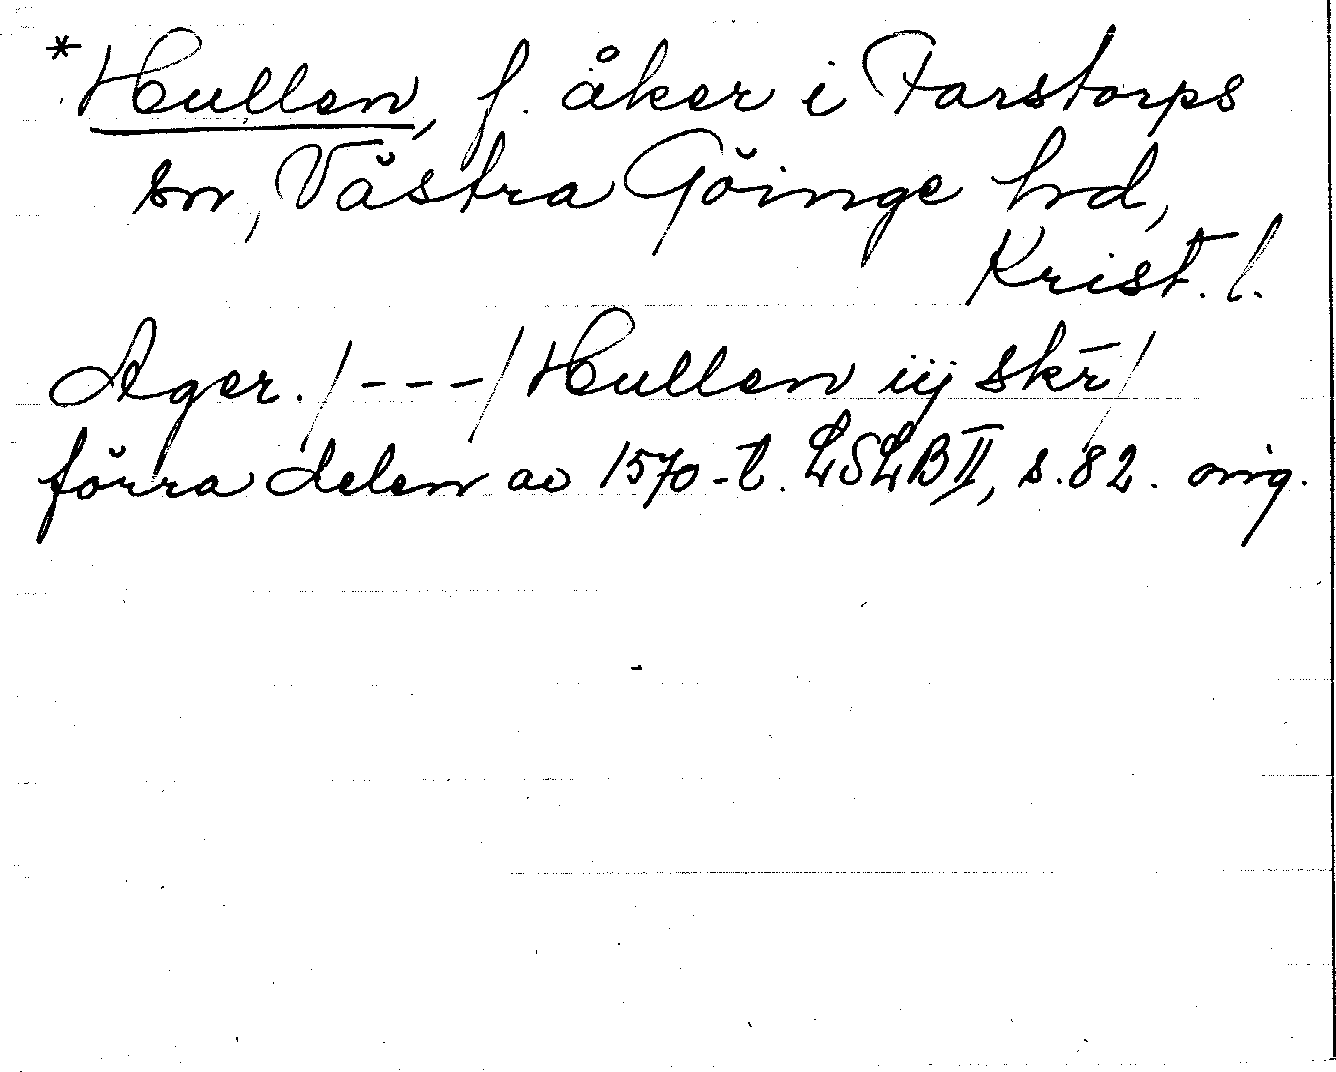 *Hullen, f. åker i Farstorps
sn, Västra Göinge hd,
Krist. l.
Ager. /---/ Hullen iij skr̄/
förra delen av 1570-t. LSLB II, s. 82. orig.